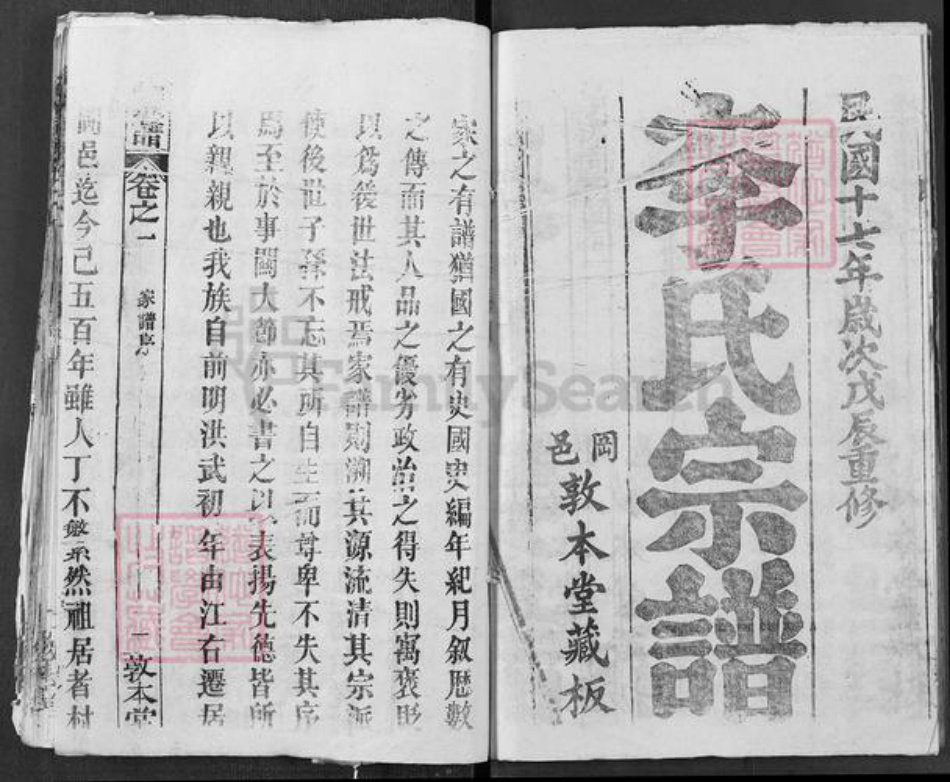 民國十七年歲次戊辰重修
李氏宗譜
岡邑
敦本堂藏板
家之有譜猶國之有史國史編年紀月叙歷數
之傳而其人品之優劣政治之得失則寓褒貶
以爲後世法戒焉家譜則溯其源流清其宗派
使後世子孫不忘其所自生而尊卑不失其序
焉至於事關大節亦必書之以表揚先德皆所
以親親也我族自前明洪武初年由江右遷居
譜 卷之一 家譜序 一 敦本堂
岡邑迄今已五百年雖人丁不繁然祖居者村
FamilySearch